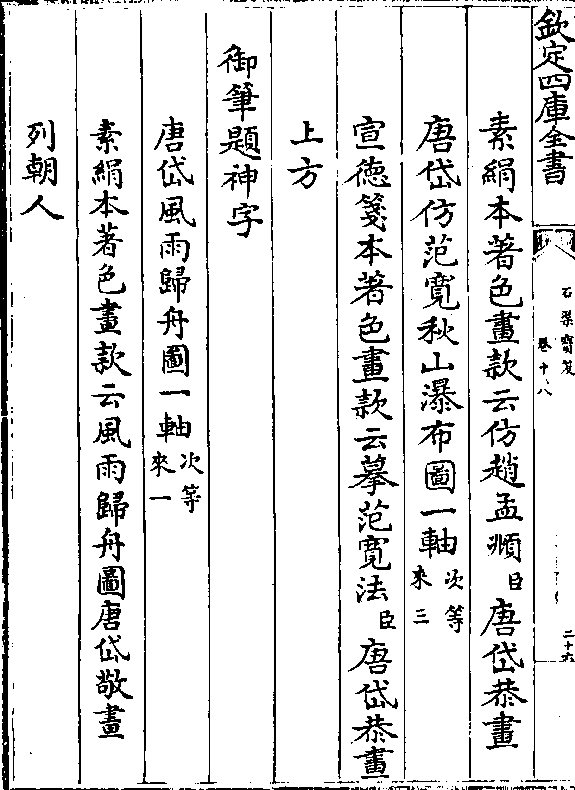 欽定四庫全書
石渠寶笈
卷十八
二十六
素絹本著色畫款云仿趙孟頫臣唐岱恭畫
唐岱仿范寬秋山瀑布圖一軸次等來三
宣德箋本著色畫款云摹范寬法臣唐岱恭畫
上方
御筆題神字
唐岱風雨歸舟圖一軸次等來一
素絹本著色畫款云風雨歸舟圖唐岱敬畫
列朝人